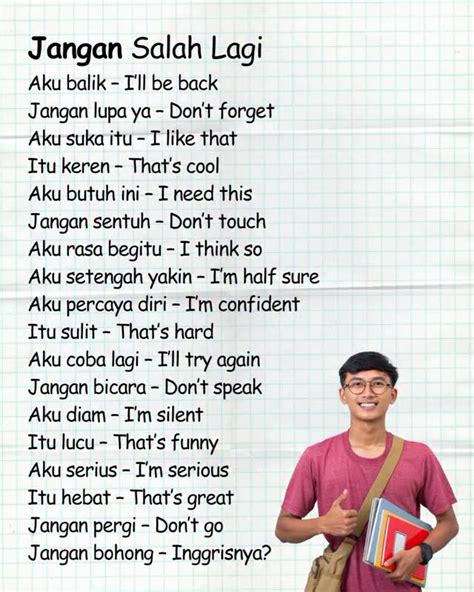 Jangan Salah Lagi
Aku balik – I'll be back
Jangan lupa ya – Don't forget
Aku suka itu – I like that
Itu keren – That's cool
Aku butuh ini – I need this
Jangan sentuh – Don't touch
Aku rasa begitu – I think so
Aku setengah yakin – I'm half sure
Aku percaya diri – I'm confident
Itu sulit – That's hard
Aku coba lagi – I'll try again
Jangan bicara – Don't speak
Aku diam – I'm silent
Itu lucu – That's funny
Aku serius – I'm serious
Itu hebat – That's great
Jangan pergi – Don't go
Jangan bohong – Inggrisnya?